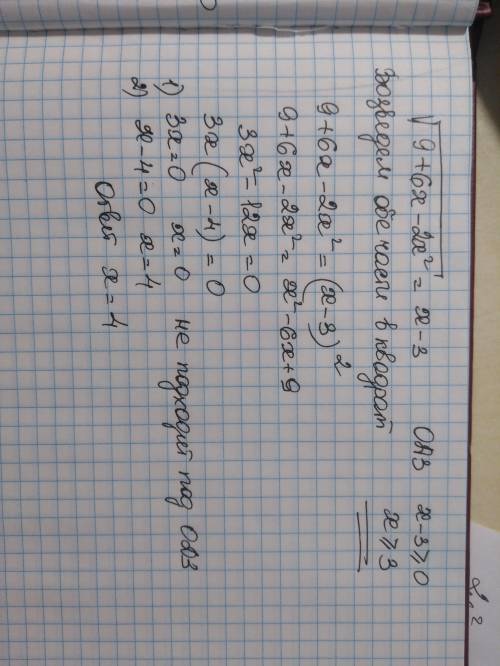 √9+6x-2x² = x-3 ОДЗ x-3≥0
Возведем обе части в квадрат x≥3
9+6x-2x² = (x-3)²
9+6x-2x² = x²-6x+9
3x²-12x=0
3x(x-4)=0
1) 3x=0 x=0 не подходит под ОДЗ
2) x-4=0 x=4
Ответ x=4